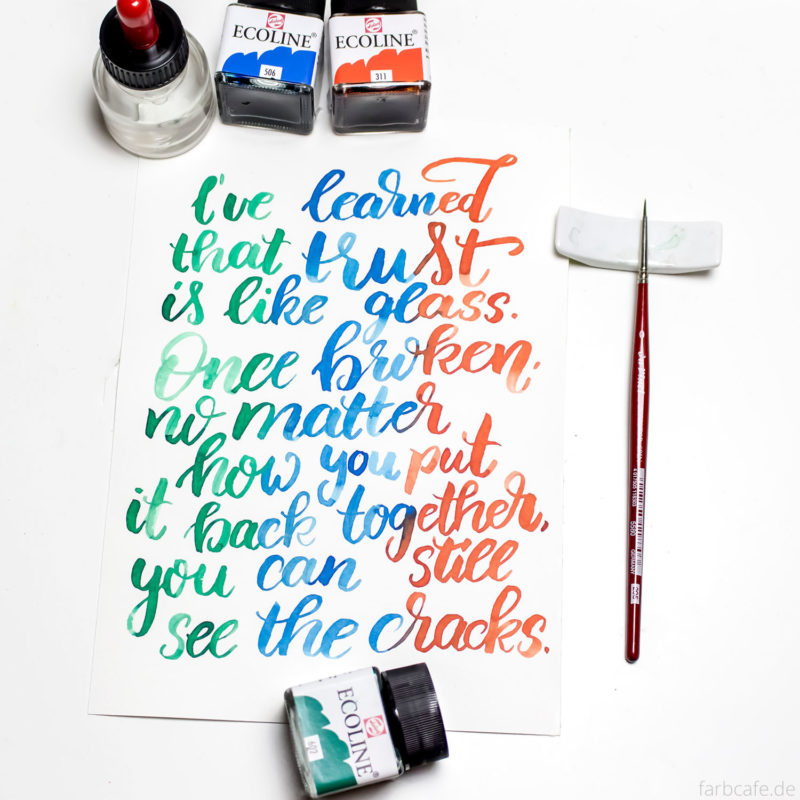 ECOLINE®
506
ECOLINE®
311
I've learned
that trust
is like glass.
Once broken,
no matter
how you put
it back together,
you can still
see the cracks.
ECOLINE
GERMANY
5580
farbcafe.de